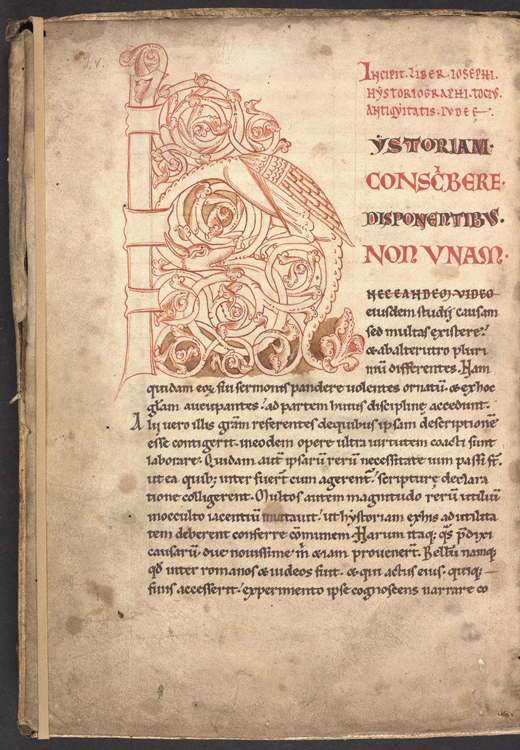 2v.
Incipit. liber. iosephi.
hystoriographi. tociꝰ.
antiquitatis. iudeę.
H
ẏSTORIAM.
CONSCͥBERE.
DISPONENTIBUS.
NON VNAM.
NEC EANDEM VIDEO
eiusdem studii causam
sed multas existere.
& ab alterutro pluri
mū differentes. Nam
quidam eoꝝ sui sermonis pandere uolentes ornatū. & ex hoc
gl̄am aucupantes. ad partem huius discipline accedunt.
Alii uero illis gr̄am referentes de quibus ipsam descriptionē
esse contigerit. in eodem opere ultra uirtutem coacti sunt
laborare. Quidam aut̄ ipsarū rerū necessitate uim passi st̄.
ut ea quib; inter fuer̄t cum agerent̄. scripturę declara
tione colligerent. Multos autem magnitudo rerū utiliū
in occulto iacentiū inuitauit. ut hystoriam ex his ad utilita
tem deberent conferre cōmunem. Harum itaq; qͣs p̄dixi
causarū. due nouissime m̄ &iam prouener̄t. Bellū namq;
qd̄ inter romanos & iudeos fuit. & qui actus eius. quiq;
finis accesserit. experimento ipse cognoscens narrare co